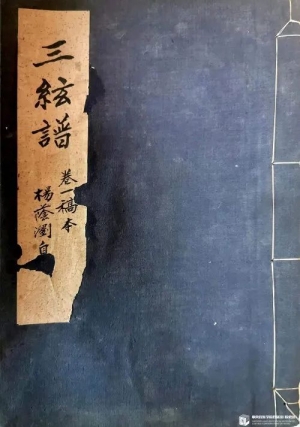 三絃譜
卷一稿本
楊蔭瀏自